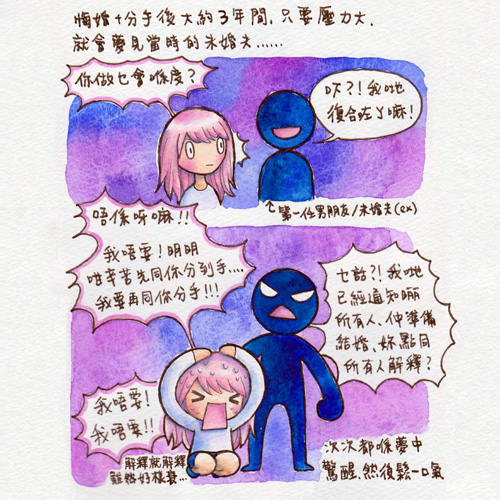 悔婚+分手後大約3年間,只要壓力大,
就會夢見當時的未婚夫......
你做乜會喺度?
吓?!我哋
復合咗了嘛!
↑第一任男朋友/未婚夫(ex)
唔係呀嘛!!
我唔要!明明
咁辛苦先同你分到手....
我要再同你分手!!!
乜話?!我哋
已經通知晒
所有人、仲準備
結婚、妳點同
所有人解釋?
我唔要!
我唔要!!
解釋就解釋
雖然好樣衰...
次次都喺夢中
驚醒、然後鬆一口氣